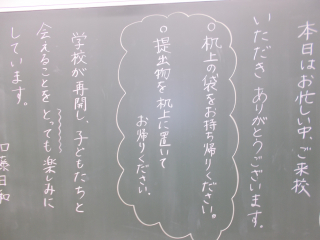 本日はお忙しい中、ご来校
いただき ありがとうございます。
○机上の袋をお持ち帰りください。
○提出物を机上に置いて
お帰りください。
学校が再開し、子どもたちと
会えることを とっても 楽しみに
しています。